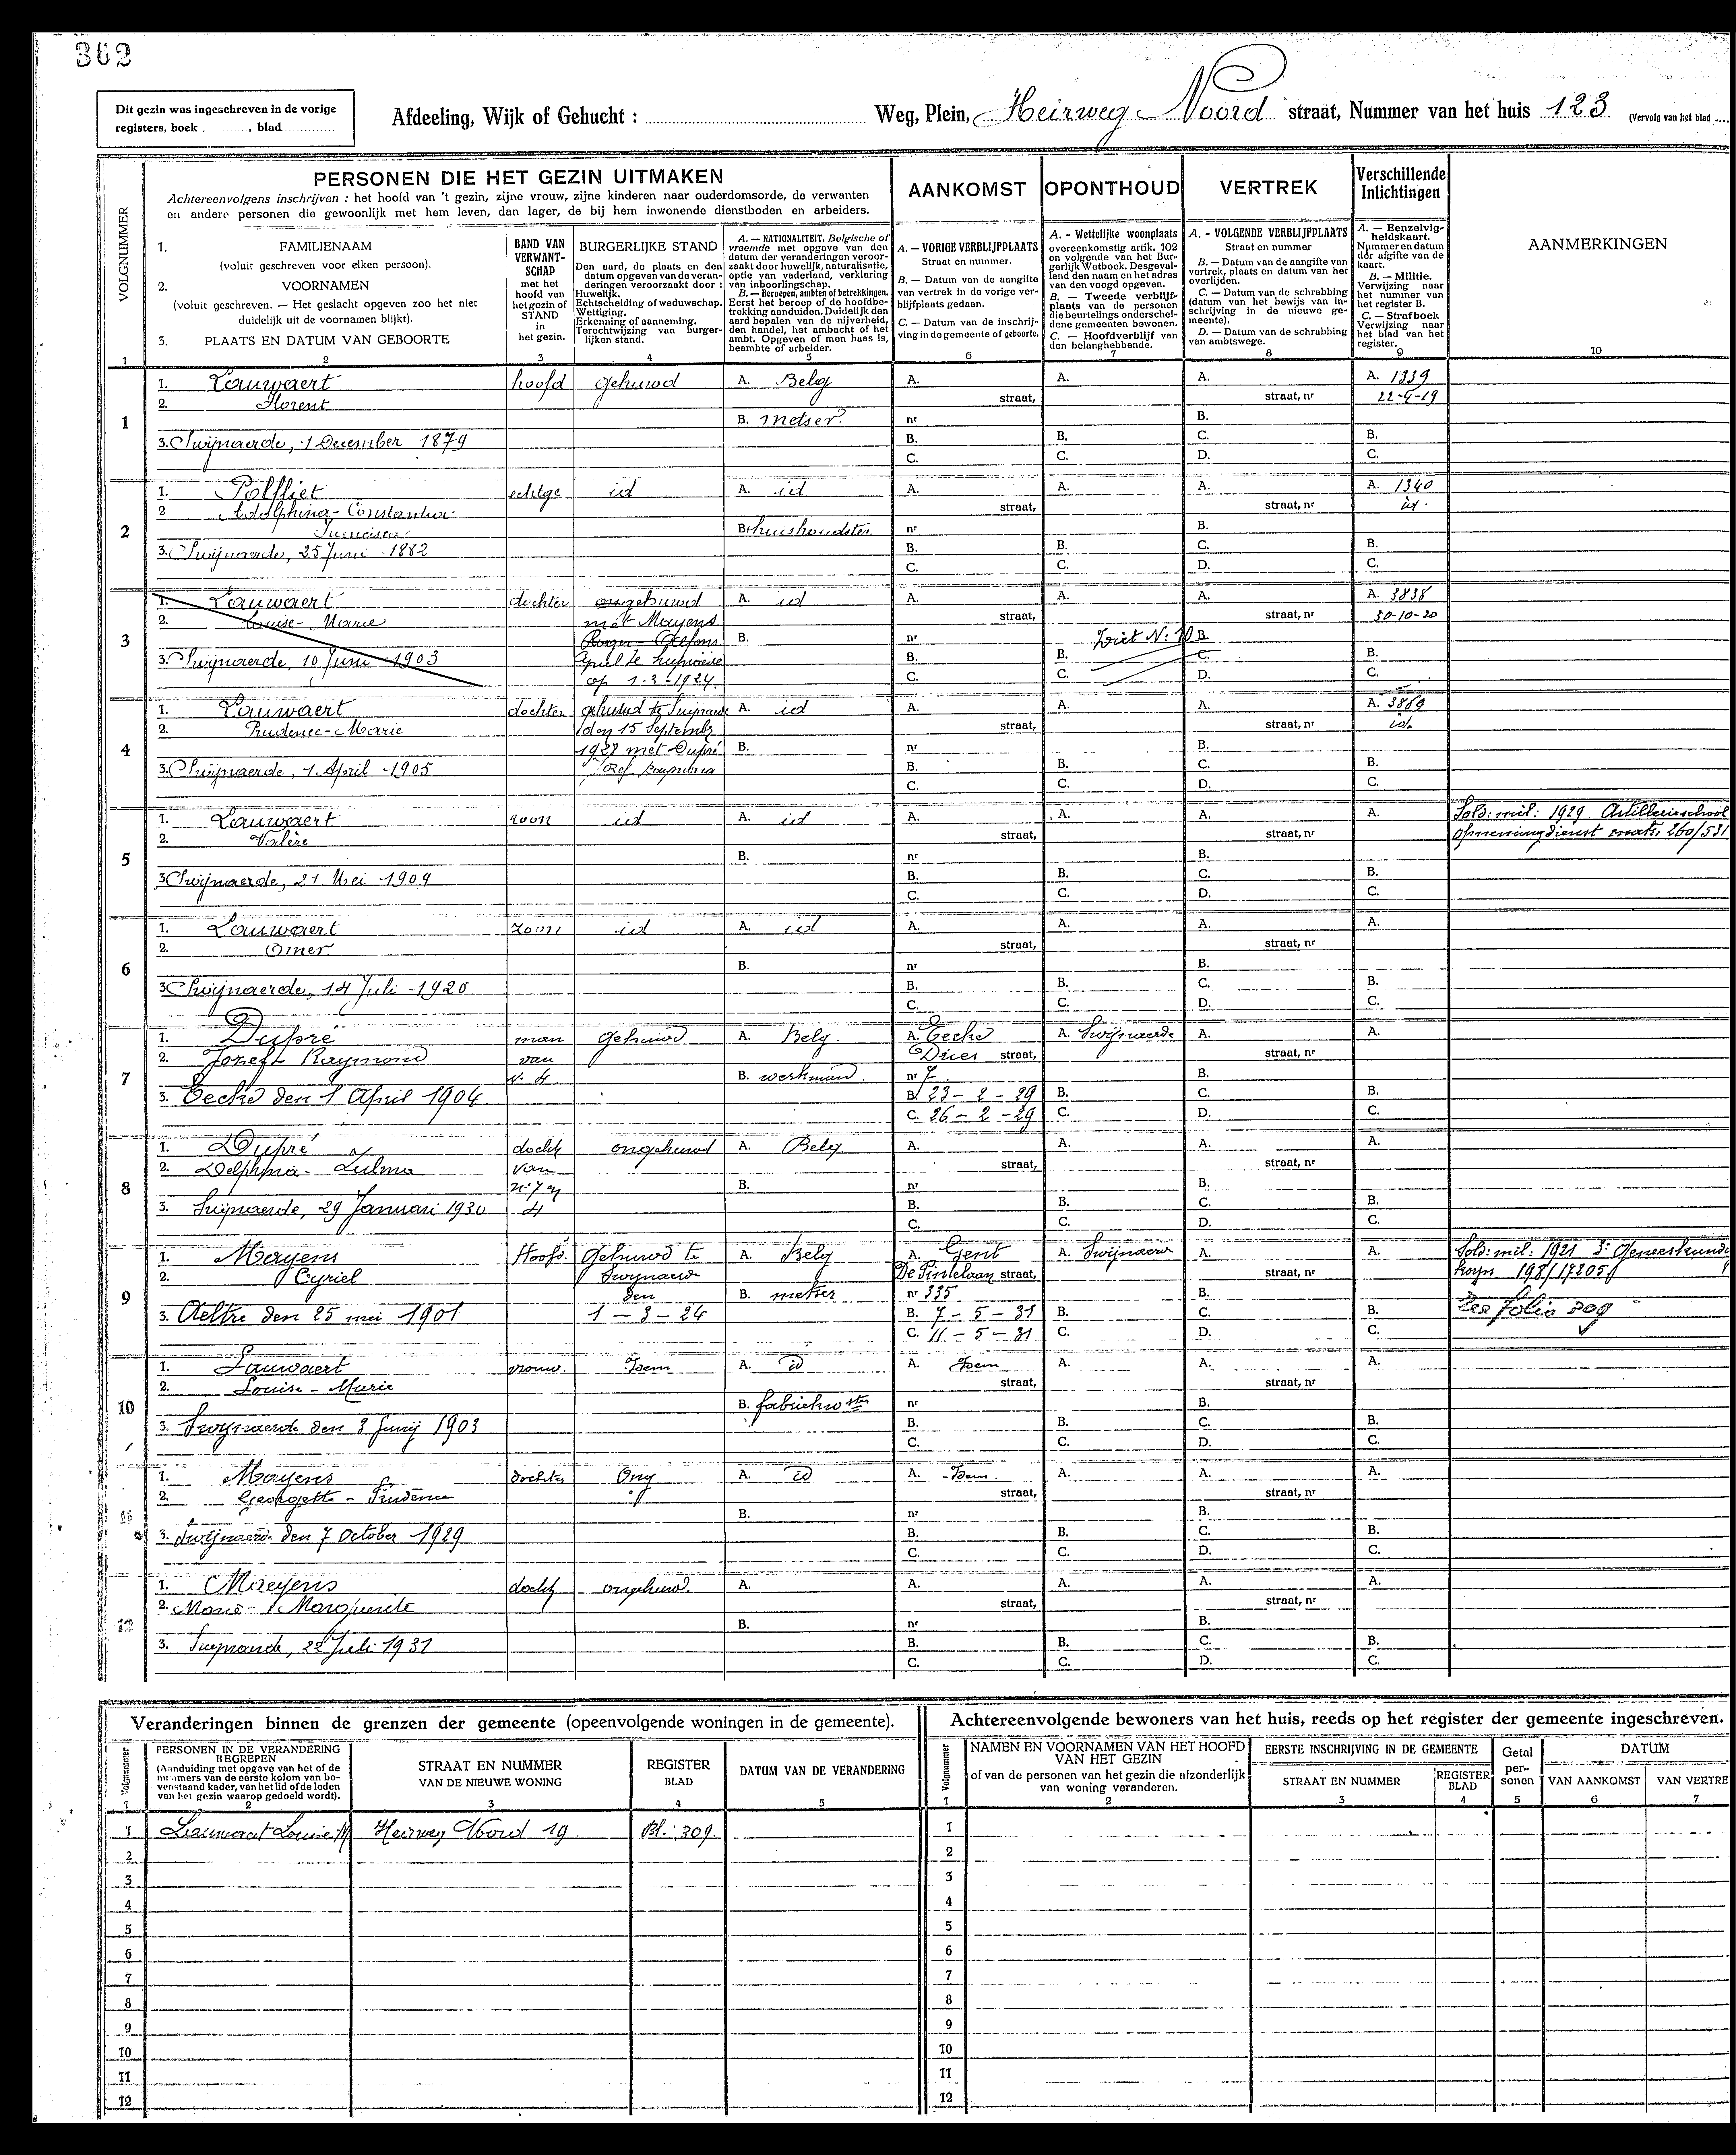 362
Dit gezin was ingeschreven in de vorige
registers, boek ........ , blad ........
Afdeeling, Wijk of Gehucht : ........ Weg, Plein, Heirweg Noord straat, Nummer van het huis 123 (Vervolg van het blad ....
VOLGNUMMER
1
PERSONEN DIE HET GEZIN UITMAKEN
Achtereenvolgens inschrijven : het hoofd van 't gezin, zijne vrouw, zijne kinderen naar ouderdomsorde, de verwanten
en andere personen die gewoonlijk met hem leven, dan lager, de bij hem inwonende dienstboden en arbeiders.
1. FAMILIENAAM
(voluit geschreven voor elken persoon).
2. VOORNAMEN
(voluit geschreven. — Het geslacht opgeven zoo het niet
duidelijk uit de voornamen blijkt).
3. PLAATS EN DATUM VAN GEBOORTE
2
BAND VAN
VERWANT-
SCHAP
met het
hoofd van
het gezin of
STAND
in
het gezin.
3
BURGERLIJKE STAND
Den aard, de plaats en den
datum opgeven van de veran-
deringen veroorzaakt door :
Huwelijk.
Echtscheiding of weduwschap.
Wettiging.
Erkenning of aanneming.
Terechtwijzing van burger-
lijken stand.
4
A. — NATIONALITEIT. Belgische of
vreemde met opgave van den
datum der veranderingen veroor-
zaakt door huwelijk, naturalisatie,
optie van vaderland, verklaring
van inboorlingschap.
B. — Beroepen, ambten of betrekkingen.
Eerst het beroep of de hoofdbe-
trekking aanduiden. Duidelijk den
aard bepalen van de nijverheid,
den handel, het ambacht of het
ambt. Opgeven of men baas is,
beambte of arbeider.
5
AANKOMST
A. — VORIGE VERBLIJFPLAATS
Straat en nummer.
B. — Datum van de aangifte
van vertrek in de vorige ver-
blijfplaats gedaan.
C. — Datum van de inschrij-
ving in de gemeente of geboorte.
6
OPONTHOUD
A. - Wettelijke woonplaats
overeenkomstig artik. 102
en volgende van het Bur-
gerlijk Wetboek. Desgeval-
lend den naam en het adres
van den voogd opgeven.
B. — Tweede verblijf-
plaats van de personen
die beurtelings onderschei-
dene gemeenten bewonen.
C. — Hoofdverblijf van
den belanghebbende.
7
VERTREK
A. - VOLGENDE VERBLIJFPLAATS
Straat en nummer
B. — Datum van de aangifte van
vertrek, plaats en datum van het
overlijden.
C. — Datum van de schrabbing
(datum van het bewijs van in-
schrijving in de nieuwe ge-
meente).
D. — Datum van de schrabbing
van ambtswege.
8
Verschillende
Inlichtingen
A. — Eenzelvig-
heidskaart.
Nummer en datum
der afgifte van de
kaart.
B. — Militie.
Verwijzing naar
het nummer van
het register B.
C. — Strafboek
Verwijzing naar
het blad van het
register.
9
AANMERKINGEN
10
1
1. Lauwaert hoofd gehuwd A. Belg A. A. A. A. 1339
2. Florent straat, straat, nr 22-9-19
B. metser nr B.
3. Swijnaerde, 1 December 1879 B. B. C. B.
C. C. D. C.
2
1. Polfliet echtge id A. id A. A. A. A. 1340
2 Adolphina-Constantia- straat, straat, nr id.
Francisca B. huishoudster nr B.
3. Swijnaerde, 25 Juni 1882 B. B. C. B.
C. C. D. C.
3
1. Lauwaert dochter ongehuwd A. id A. A. A. A. 3838
2. Louise-Marie met Mayens straat, straat, nr 30-10-20
B. nr Ziet N: 10 B.
3. Swijnaerde, 10 Juni 1903 B. B. C. B.
op 1-3-1924. C. C. D. C.
4
1. Lauwaert dochter gehuwd te A. id A. A. A. A. 3869
2. Prudence-Marie den 15 Septembr straat, straat, nr id.
1928 met Dupré B. nr B.
3. Swijnaerde, 1 April 1905 B. B. C. B.
C. C. D. C.
5
1. Lauwaert zoon id A. id A. A. A. A. Sold: mil: 1929 Artillerieschool
2. Valère straat, straat, nr 260/531
B. nr B.
3 Swijnaerde, 21 Mei 1909 B. B. C. B.
C. C. D. C.
6
1. Lauwaert zoon id A. id A. A. A. A.
2. Omer straat, straat, nr
B. nr B.
3 Swijnaerde, 14 Juli 1920 B. B. C. B.
C. C. D. C.
7
1. Dupré man gehuwd A. Belg. A. Eecke A. Swijnaerde A. A.
2. Jozef Raymond van Dries straat, straat, nr
N. 4. B. werkman nr 7 B.
3. Eecke den 1 April 1904 B. 23-2-29 B. C. B.
C. 26-2-29 C. D. C.
8
1. Dupré docht ongehuwd A. Belg. A. A. A. A.
2. Delphina-Zulma van straat, straat, nr
n: 7 en B. nr B.
3. Swijnaerde, 29 Januari 1930 4 B. B. C. B.
C. C. D. C.
9
1. Mayens Hoofd. Gehuwd te A. Belg A. Gent A. Swijnaerde A. A. Sold: mil: 1921
2. Cyriel Swijnaerde De Pintelaan straat, straat, nr 198/17205
den B. metser nr 335 B.
3. Aeltre den 25 mei 1901 1-3-24 B. 7-5-31 B. C. B. Zie folio 309
C. 11-5-31 C. D. C.
10
1. Lauwaert vrouw. Idem A. id A. Idem A. A. A.
2. Louise-Marie straat, straat, nr
B. fabriekwster nr B.
3. Swijnaerde den 3 Junij 1903 B. B. C. B.
C. C. D. C.
11
1. Mayens dochter Ong A. id A. Idem. A. A. A.
2. Georgette-Prudence straat, straat, nr
B. nr B.
3. Swijnaerde den 7 October 1929 B. B. C. B.
C. C. D. C.
12
1. Mayens docht ongehuwd. A. A. A. A. A.
2. Marie-Marguerite straat, straat, nr
B. nr B.
3. Swijnaerde, 22 Juli 1931 B. B. C. B.
C. C. D. C.
Veranderingen binnen de grenzen der gemeente (opeenvolgende woningen in de gemeente).
Volgnummer
1
PERSONEN IN DE VERANDERING
BEGREPEN
(Aanduiding met opgave van het of de
nummers van de eerste kolom van bo-
venstaand kader, van het lid of de leden
van het gezin waarop gedoeld wordt).
2
STRAAT EN NUMMER
VAN DE NIEUWE WONING
3
REGISTER
BLAD
4
DATUM VAN DE VERANDERING
5
1 Lauwaert Louise M Heirweg Noord 19 Bl. 309.
2
3
4
5
6
7
8
9
10
11
12
Achtereenvolgende bewoners van het huis, reeds op het register der gemeente ingeschreven.
Volgnummer
1
NAMEN EN VOORNAMEN VAN HET HOOFD
VAN HET GEZIN
of van de personen van het gezin die afzonderlijk
van woning veranderen.
2
EERSTE INSCHRIJVING IN DE GEMEENTE
STRAAT EN NUMMER
3
REGISTER
BLAD
4
Getal
per-
sonen
5
DATUM
VAN AANKOMST
6
VAN VERTRE
7
1
2
3
4
5
6
7
8
9
10
11
12